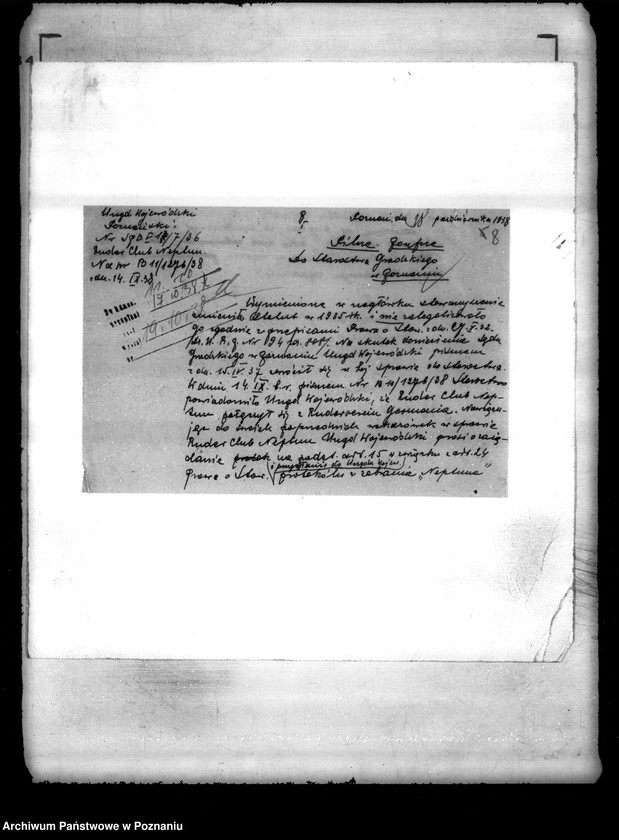 Urząd Wojewódzki
Poznański.
Ruder Club Neptun.
Na nr B 11/1276/38
z dn. 14. IX. 38
8.
Poznań, dn. 18 października 1938
8
Pilne. Poufne
Do Starostwa Grodzkiego
w Poznaniu
19.10.38
Wymienione w nagłówku stowarzyszenie
zmieniło statut w 1935 r. i nie zalegalizowało
go zgodnie z przepisami Prawa o Stow. z dn. 27. X. 32.
Dz. U. R. P. Nr 94 p. 808/. Na skutek doniesienia Sądu
Grodzkiego w Poznaniu Urząd Wojewódzki pismem
z dn. 15. IV. 37 zwrócił się w tej sprawie do Starostwa.
W dniu 14. IX. b.r. pismem Nr B 11/1276/38 Starostwo
powiadomiło Urząd Wojewódzki, że Ruder Club Nep-
tun połączył się z Ruderverein Germania. Nawiązu-
jąc do swoich poprzednich w sprawie
Ruder Club Neptun Urząd Wojewódzki prosi o zażą-
danie na podst. art. 15 w związku z art. 24
Prawa o Stow. i przesłanie do Urzędu Wojew.
protokółu z zebrania „Neptuna"
Archiwum Państwowe w Poznaniu